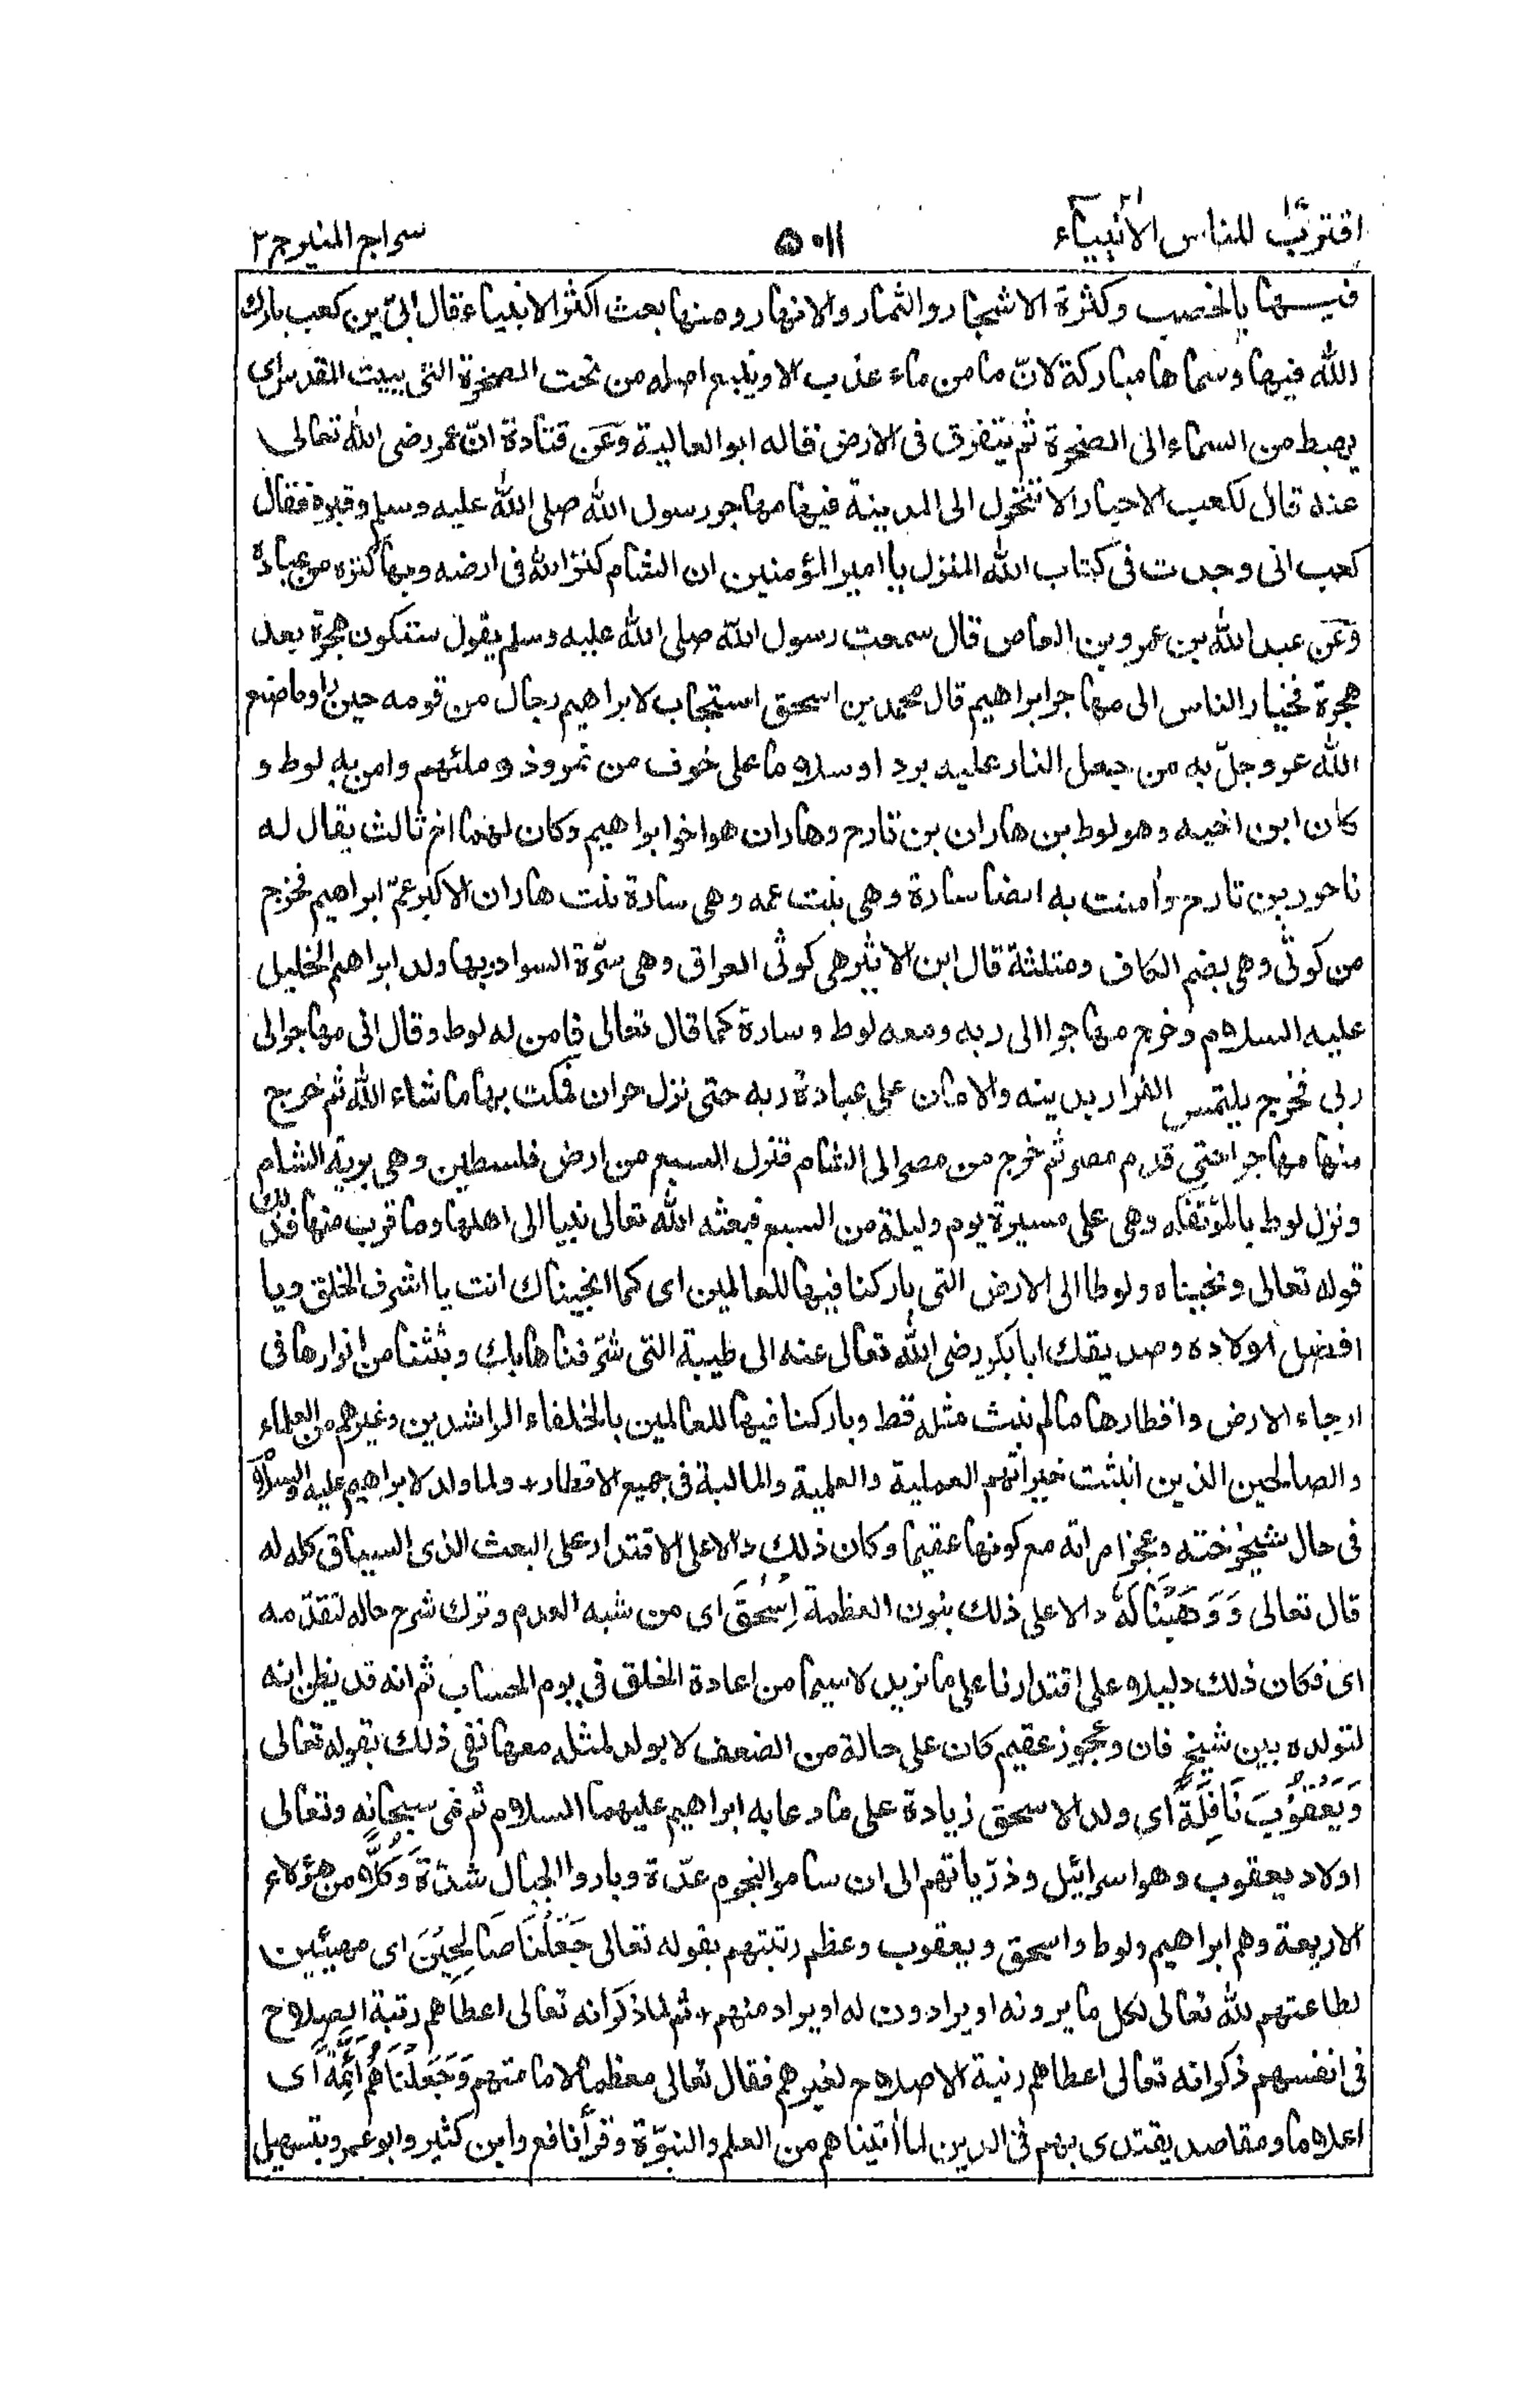 اقترب للناس الانبياء ۵۰۱۱ سراج المنير ج ۲
فيها بالخصب وكثرة الاشجار والثمار والانهار ومنها بعث اكثر الانبياء قال ابىّ بن كعب بارك
الله فيها وسماها مباركة لانّ ما من ماء عذب الا وينبع اصله من تحت الصخرة التى ببيت المقدس اى
يهبط من السماء الى الصخرة ثم يتفرق فى الارض قاله ابو العالية وَعَن قتادة انّ عمر رضى الله تعالى
عنه قال لكعب الاحبار الا تتحول الى المدينة فيها مهاجر رسول الله صلى الله عليه وسلم وقبره فقال
كعب انى وجدت فى كتاب الله المنزل يا امير المؤمنين ان الشام كنز الله فى ارضه وبها كنزه من عباده
وَعَن عبد الله بن عمرو بن العاص قال سمعت رسول الله صلى الله عليه وسلم يقول ستكون هجرة بعد
هجرة فخيار الناس الى مهاجر ابراهيم قال محمد بن اسحق استجاب لابراهيم رجال من قومه حين راوا ما صنع
الله عز وجلّ به من جعل النار عليه بردا وسلاما على خوف من نمروذ وملئهم وامن به لوط و
كان ابن اخيه وهو لوط بن هاران بن تارح وهاران هو اخو ابراهيم وكان لهما اخ ثالث يقال له
ناحور بن تارح وأمنت به ايضا سارة وهى بنت عمه وهى سارة بنت هاران الاكبر عمّ ابراهيم فخرج
من كوثى وهى بضم الكاف ومثلثة قال ابن الاثير هى كوثى العراق وهى سرّة السواد وبها ولد ابراهيم الخليل
عليه السلام وخرج مهاجرا الى ربه ومعه لوط وسارة كما قال تعالى فامن له لوط وقال انى مهاجر الى
ربى فخرج يلتمس الفرار بدينه والامان على عبادة ربه حتى نزل حران فمكث بها ما شاء الله ثم خرج
منها مهاجرا حتى قدم مصر ثم خرج من مصر الى الشام فنزل السبع من ارض فلسطين وهى برية الشام
ونزل لوط بالمؤتفكه وهى على مسيرة يوم وليلة من السبع فبعثه الله تعالى نبيا الى اهلها وما قرب منها فذلك
قوله تعالى ونجيناه ولوطا الى الارض التى باركنا فيها للعالمين اى كما انجيناك انت يا اشرف الخلق ويا
افضل اولاده وصديقك ابا بكر رضى الله تعالى عنه الى طيبة التى شرّفناها بك وبثثنا من انوارها فى
ارجاء الارض واقطارها ما لم نبث مثله قط وباركنا فيها للعالمين بالخلفاء الراشدين وغيرهم من العلماء
والصالحين الذين انبثت خيراتهم العملية والعلمية والمالية فى جميع الاقطار + ولما ولد لابراهيم عليه السلام
فى حال شيخوخته وعجز امراته مع كونها عقيما وكان ذلك دالا على الاقتدار على البعث الذى السياق كله له
قال تعالى وَوَهَبْنَا لَهٗ دالا على ذلك بنون العظمة اِسْحٰقَ اى من شبه العدم وترك شرح حاله لتقدّمه
اى فكان ذلك دليلا على اقتدارنا على ما نريد لاسيما من اعادة الخلق فى يوم الحساب ثم انه قد يظن انه
لتولده بين شيخ فان وعجوز عقيم كان على حالة من الضعف لا يولد لمثله معها نفى ذلك بقوله تعالى
وَيَعْقُوْبَ نَافِلَةً اى ولد الاسحق زيادة على ما دعا به ابراهيم عليهما السلام ثم نمى سبحانه وتعالى
اولاد يعقوب وهو اسرائيل وذرّياتهم الى ان ساموا النجوم عدّة وباروا الجبال شدّة وَكُلًّا من هؤلاء
الاربعة وهم ابراهيم ولوط واسحق ويعقوب وعظم رتبتهم بقوله تعالى جَعَلْنَا صَالِحِيْنَ اى مهيئين
لطاعتهم لله تعالى لكل ما يرونه او يرادون له او يراد منهم + ثم لما ذكر انه تعالى اعطاهم رتبة الصلاح
فى انفسهم ذكر انه تعالى اعطاهم رتبة الاصلاح لغيرهم فقال تعالى معظما لامامتهم وَجَعَلْنَاهُمْ اَئِمَّةً اى
اعلاما ومقاصد يقتدى بهم فى الدين لما أتيناهم من العلم والنبوّة وقرأ نافع وابن كثير وابو عمرو بتسهيل